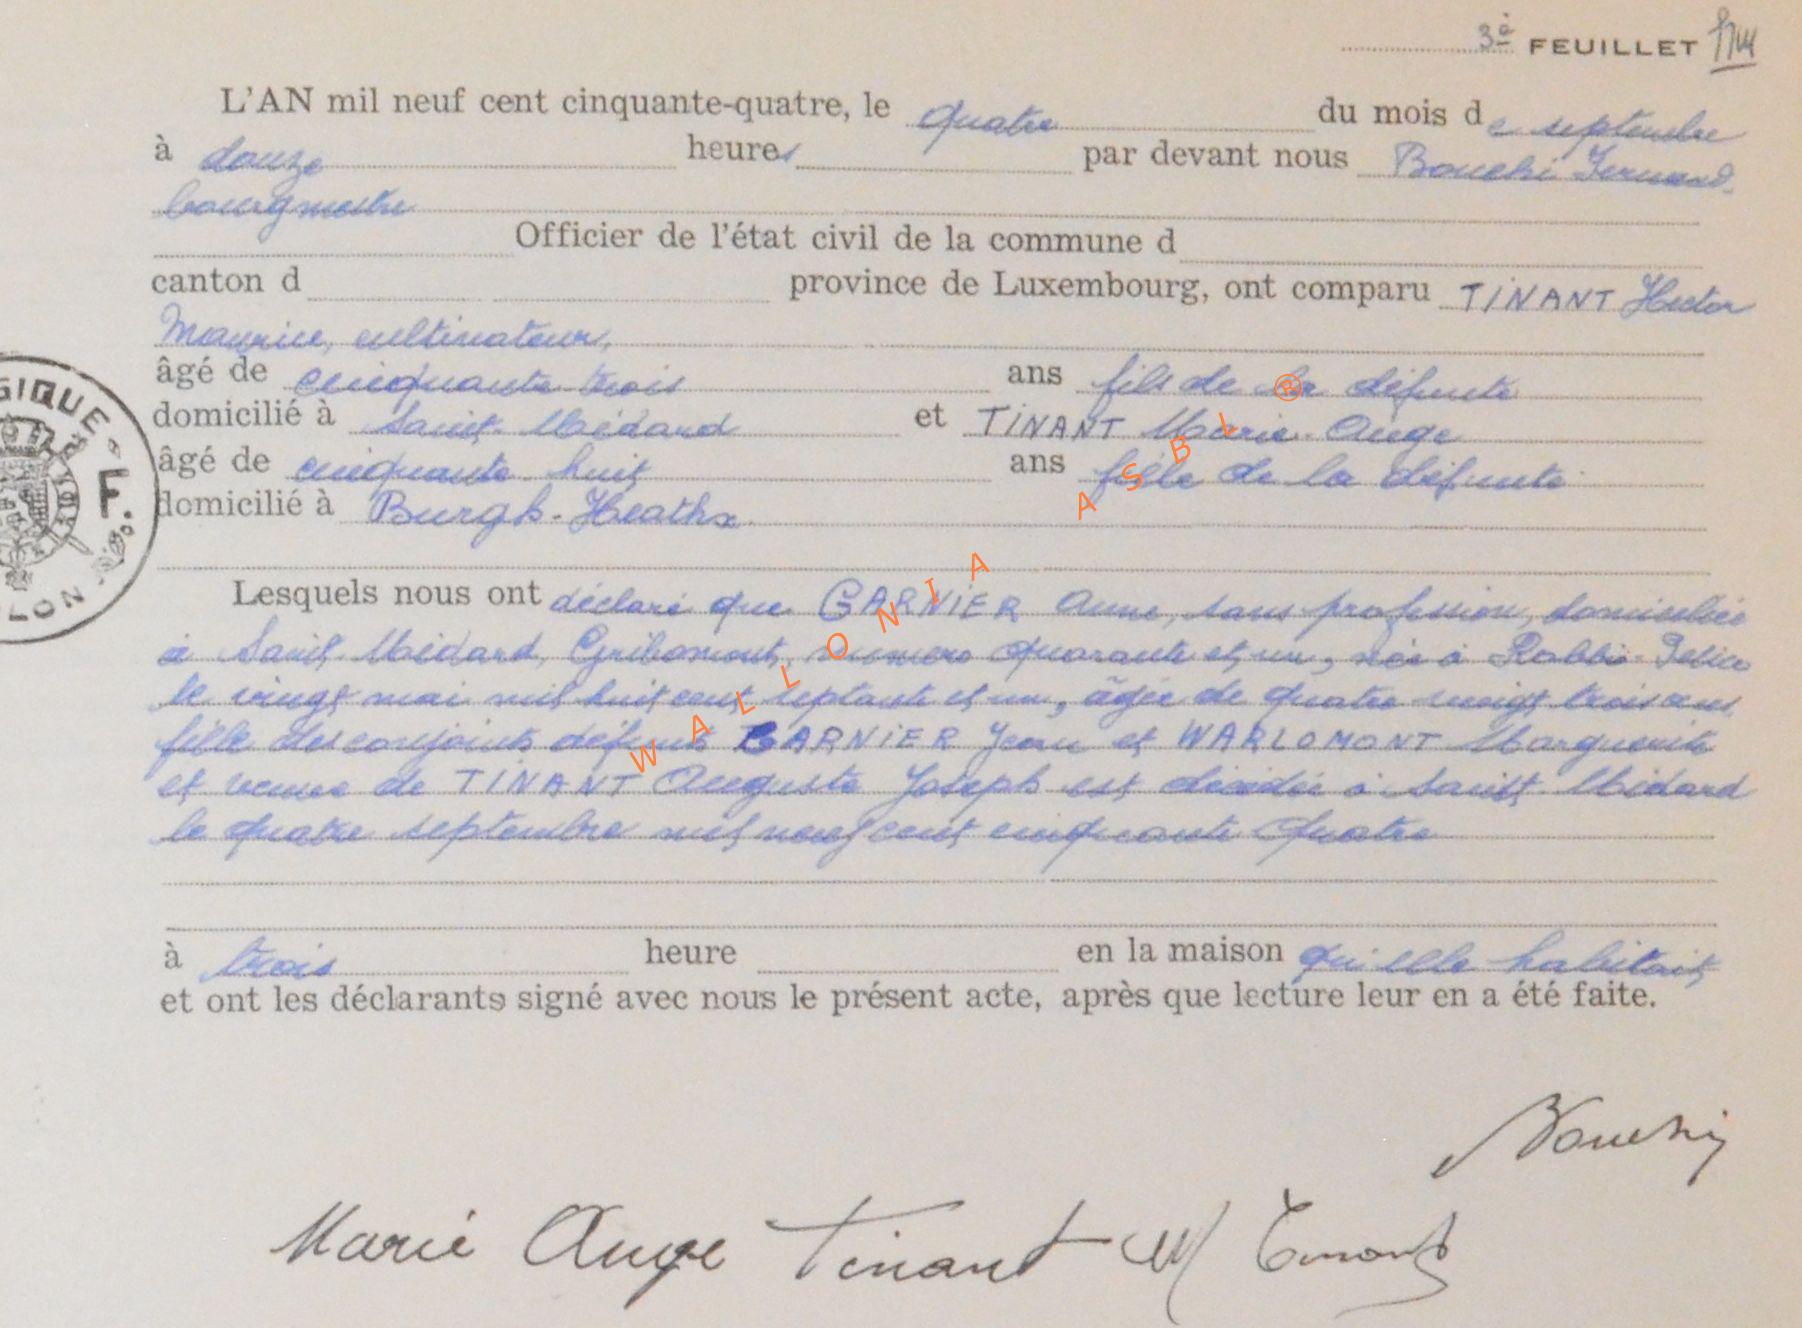 3e FEUILLET
L'AN mil neuf cent cinquante-quatre, le quatre du mois de septembre
à douze heures par devant nous Bouchi Fernand
bourgmestre
Officier de l'état civil de la commune d
canton d province de Luxembourg, ont comparu TINANT Hector
Maurice, cultivateur,
âgé de cinquante trois ans fils de la défunte
domicilié à Saint-Médard et TINANT Marie-Ange
âgé de cinquante huit ans fille de la défunte
domicilié à Burgh-Heath
Lesquels nous ont déclaré que GARNIER Anne, sans profession, domiciliée
à Saint-Médard, Gribomont, numéro quarante et un, née à
le vingt mai mil huit cent septante et un, âgée de quatre vingt trois ans
fille des conjoints défunts GARNIER Jean et WARLOMONT Marguerite
et veuve de TINANT Auguste Joseph est décédée à Saint-Médard
le quatre septembre mil neuf cent cinquante quatre
à trois heure en la maison qu'elle habitait
et ont les déclarants signé avec nous le présent acte, après que lecture leur en a été faite.
Bouchi
Marie Ange Tinant M Tinant
GIQUE F. LON
WALLONIA ASBL ®